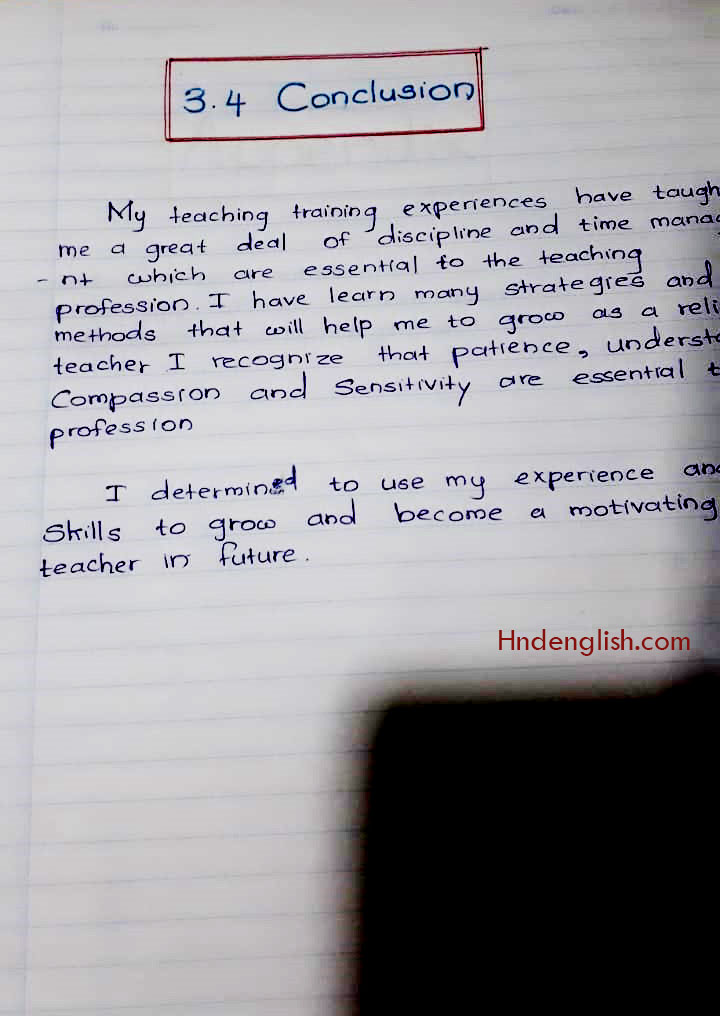 3.4 Conclusion
My teaching training experiences have taugh
me a great deal of discipline and time manag
- nt which are essential to the teaching
profession. I have learn many strategies and
methods that will help me to grow as a reli
teacher I recognize that patience, understa
Compassion and Sensitivity are essential t
profession
I determined to use my experience and
Skills to grow and become a motivating
teacher in future.
Hndenglish.com